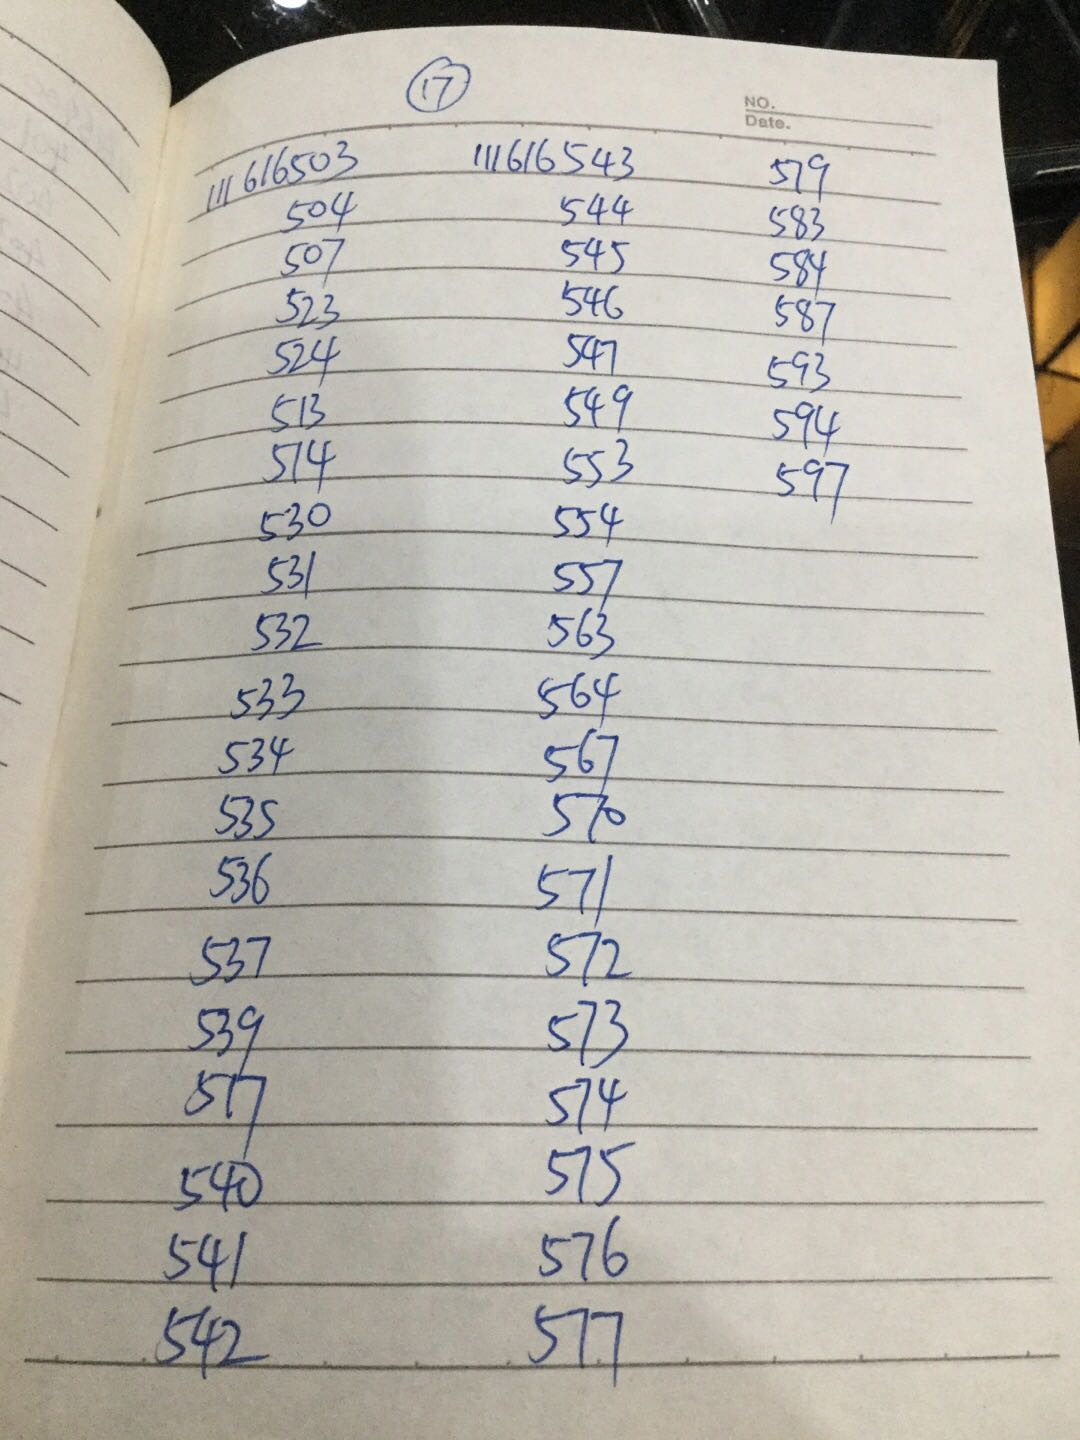 17
NO.
Date.
111616503
504
507
523
524
513
514
530
531
532
533
534
535
536
537
539
517
540
541
542
111616543
544
545
546
547
549
553
554
557
563
564
567
570
571
572
573
574
575
576
577
579
583
584
587
593
594
597